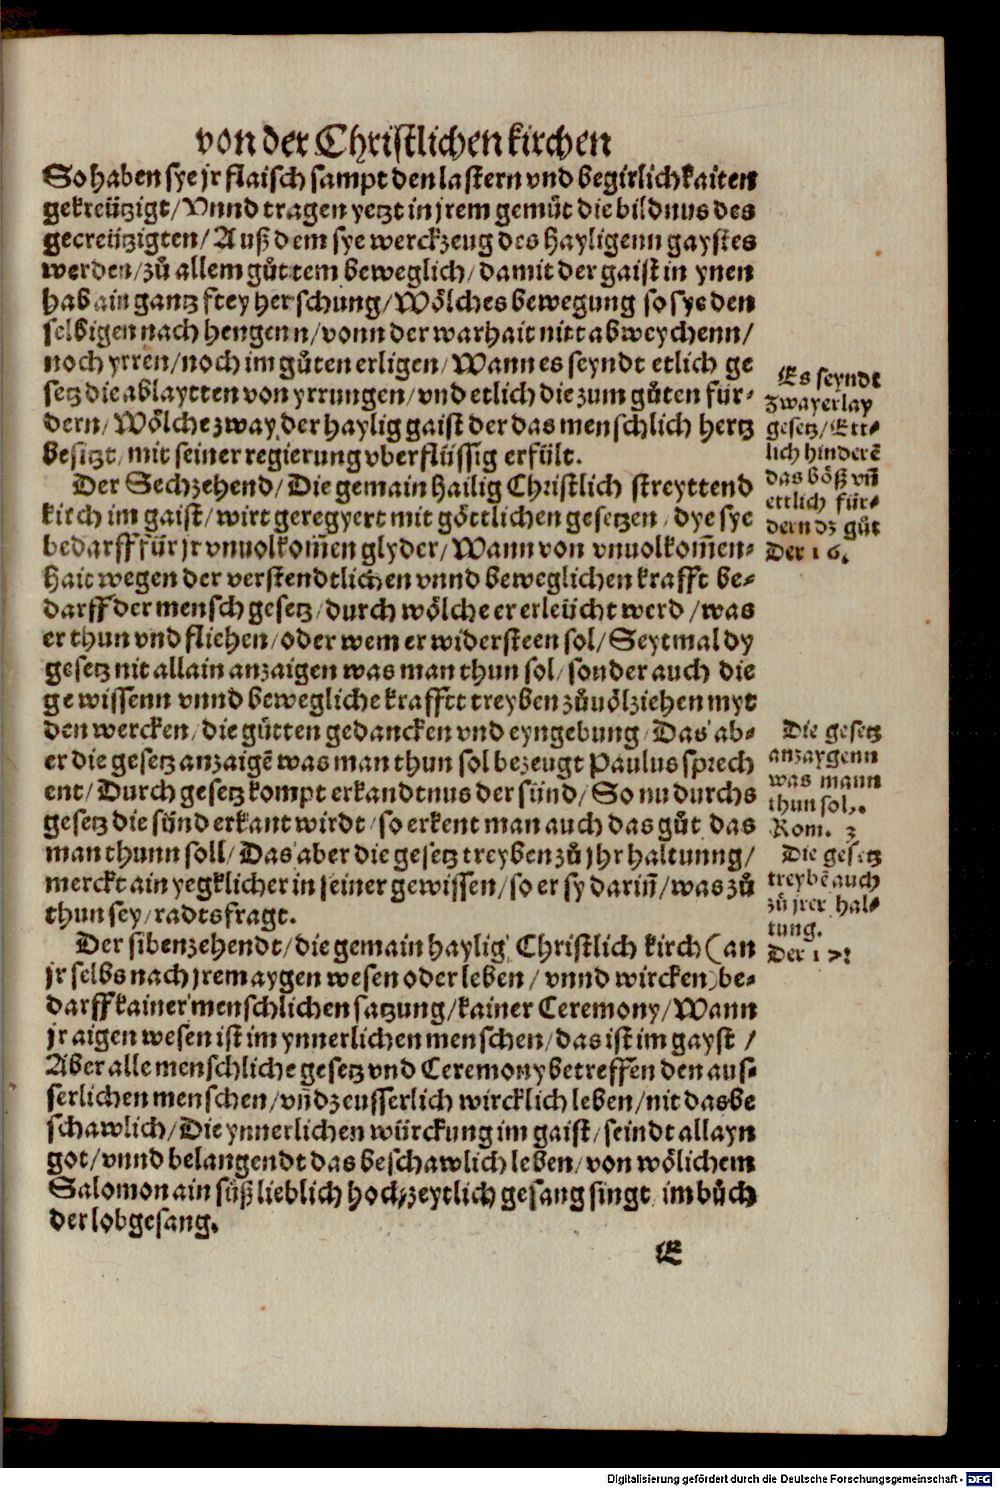 von der Christlichen kirchen
So haben sye jr flaisch sampt den lastern vnd begirlichkaiten
gekreützigt/ Vnnd tragen yetzt in jrem gemüt die bildnus des
gecreützigten/ Auß dem sye werckzeug des hayligenn gaystes
werden/ zů allem gůttem beweglich/ damit der gaist in ynen
hab ain gantz frey herschung/ Wölches bewegung so sye den
selbigen nach hengenn/ vonn der warhait nitt abweychenn/
noch yrren/ noch im gůten erligen/ Wann es seyndt etlich ge
setz die ablaytten von yrrungen/ vnd etlich die zum gůten für⸗
dern/ Wölche zway, der haylig gaist der das menschlich hertz
besitzt/ mit seiner regierung vberflüssig erfült.
Der Sechzehend/ Die gemain hailig Christlich streyttend
kirch im gaist/ wirt geregyert mit göttlichen gesetzen/ dye sye
bedarff für jr vnuolkom̃en glyder/ Wann von vnuolkom̃en⸗
hait wegen der verstendtlichen vnnd beweglichen krafft be⸗
darff der mensch gesetz/ durch wölche er erleücht werd/ was
er thun vnd fliehen/ oder wem er widersteen sol/ Seytmal dy
gesetz nit allain anzaigen was man thun sol/ sonder auch die
gewissenn vnnd bewegliche krafftt treyben zůuölziehen myt
den wercken/ die gůtten gedancken vnd eyngebung/ Das ab⸗
er die gesetz anzaigẽ was man thun sol bezeugt Paulus sprech
ent/ Durch gesetz kompt erkandtnus der sünd/ So nu durchs
gesetz die sünd erkant wirdt/ so erkent man auch das gůt das
man thunn soll/ Das aber die gesetz treyben zů jhr haltunng/
merckt ain yegklicher in seiner gewissen/ so er sy dariñ/ was zů
thun sey/ radtsfragt.
Der sibenzehendt/ die gemain haylig Christlich kirch (an
jr selbs nach jrem aygen wesen oder leben/ vnnd wircken) be⸗
darff kainer menschlichen satzung/ kainer Ceremony/ Wann
jr aigen wesen ist im ynnerlichen menschen/ das ist im gayst/
Aber alle menschliche gesetz vnd Ceremony betreffen den aus⸗
serlichen menschen/ vñd zeusserlich wircklich leben/ nit das be
schawlich/ Die ynnerlichen würckung im gaist/ seindt allayn
got/ vnnd belangendt das beschawlich leben/ von wölichem
Salomon ain süß lieblich hochzeytlich gesang singt/ im bůch
der lobgesang.
E
Es seyndt
zwayerlay
gesetz/ Ett⸗
lich hinderẽ
das böß vñ
ettlich für⸗
dern dz gůt
Der 16.
Die gesetz
anzaygenn
was mann
thun sol.
Rom. 3
Die gesetz
treybẽ auch
zů jrer hal⸗
tung.
Der 17:
Digitalisierung gefördert durch die Deutsche Forschungsgemeinschaft - DFG